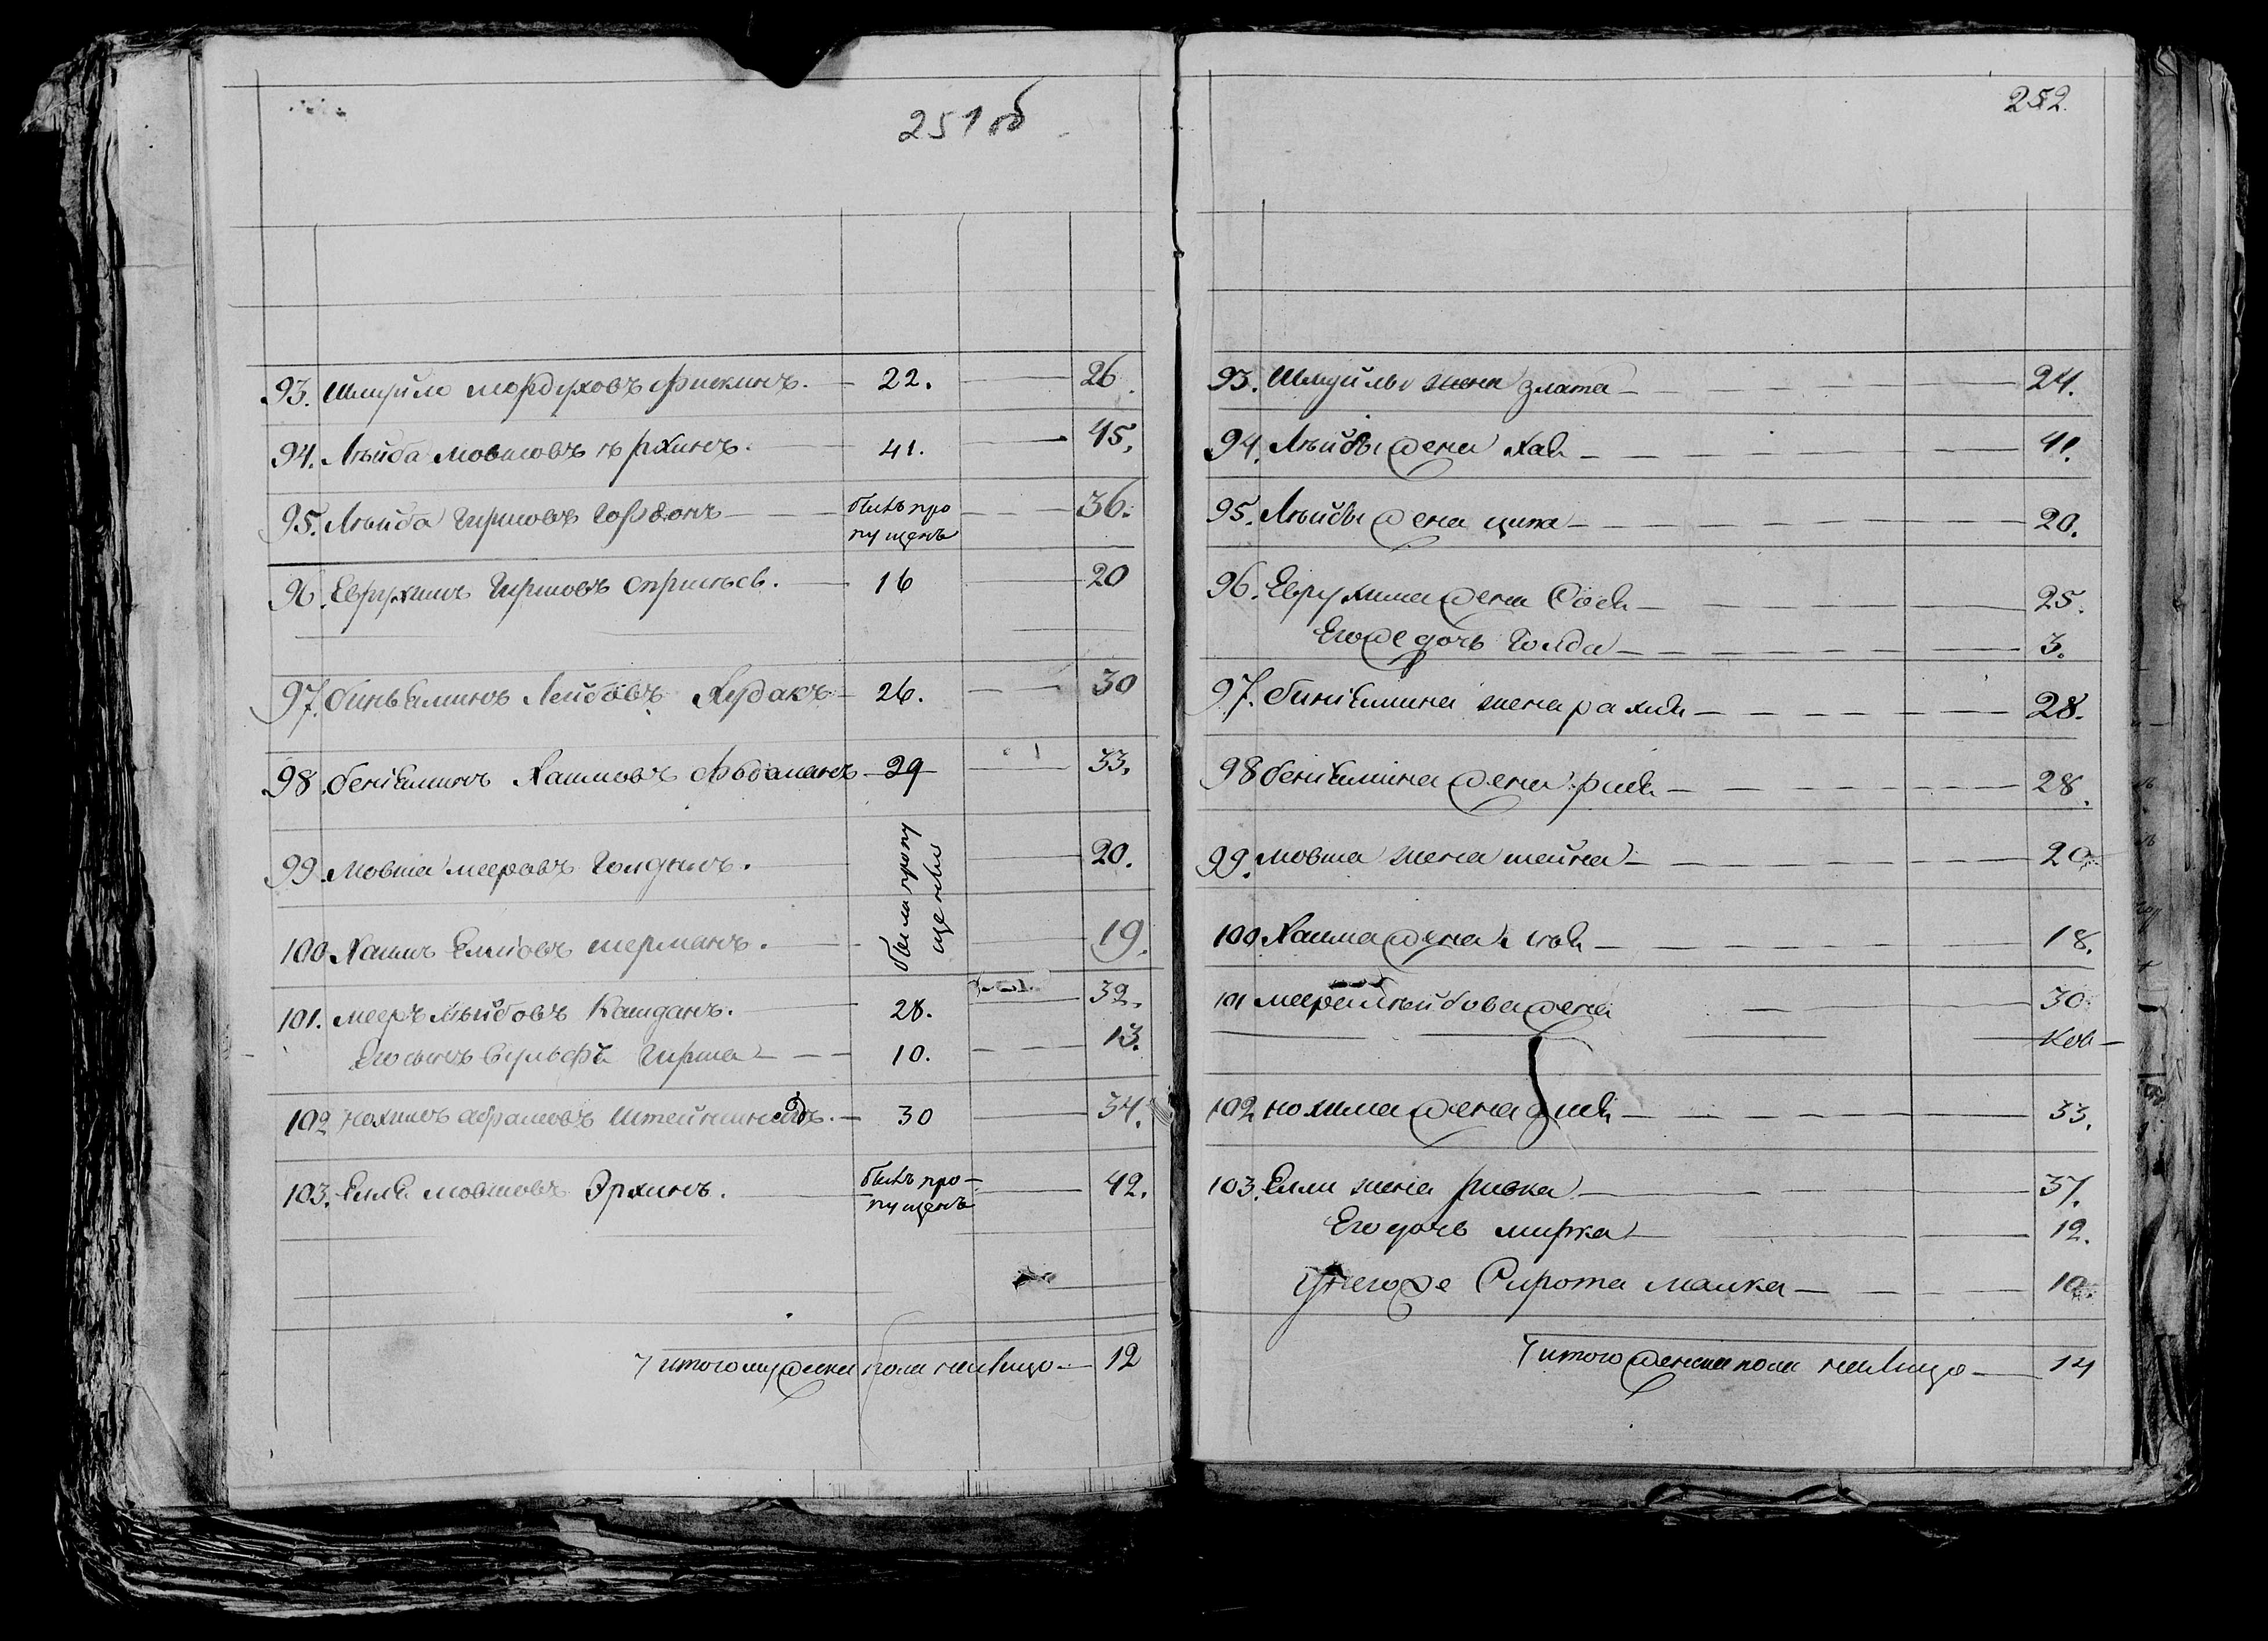 251 об
93. Шмуйло Мордуховъ Фискинъ. 22. 26.
94. Лѣйба Мовшовъ 41. 45.
95. Лѣйба Гиршовъ Гордонъ былъ про 36.
пущенъ
96. Еврухимъ Гиршовъ 16 20
97. Биньяминъ Лейбовъ Худакъ 26. 30
98. Беніяминъ Хаимовъ 29 33.
99. Мовша Мееровъ 20.
были пропу
щены
100. Хаимъ Еліовъ Шерманъ. 19.
101. Мееръ Лѣйбовъ Кашданъ. 28. 32.
Его сынъ Вульфъ Гирша 10. 13.
102 Нохимъ Абрамовъ 30 34.
103. Мовшовъ Эрхинъ. былъ про- 42.
пущенъ
итого мужеска пола налицо 12
252.
93. Шмуйлы жена Злата 24.
94. Лѣйбы жена Хая 41.
95. Лѣйбы жена Ципа 20.
96. Еврухима жена Сося 25.
Его же дочь Голда 3.
97. Биніямина жена Рахля 28.
98 Беніямина жена 28.
99. Мовша жена Шейна 20.
100. Хаима жена 18.
101 Меера Лѣйбова жена 30.
102 Нохима жена 33.
103. Елли жена Ривка 37.
Его дочь Мирка 12.
У него же Сирота Малка 10.
итого женска пола налицо 14